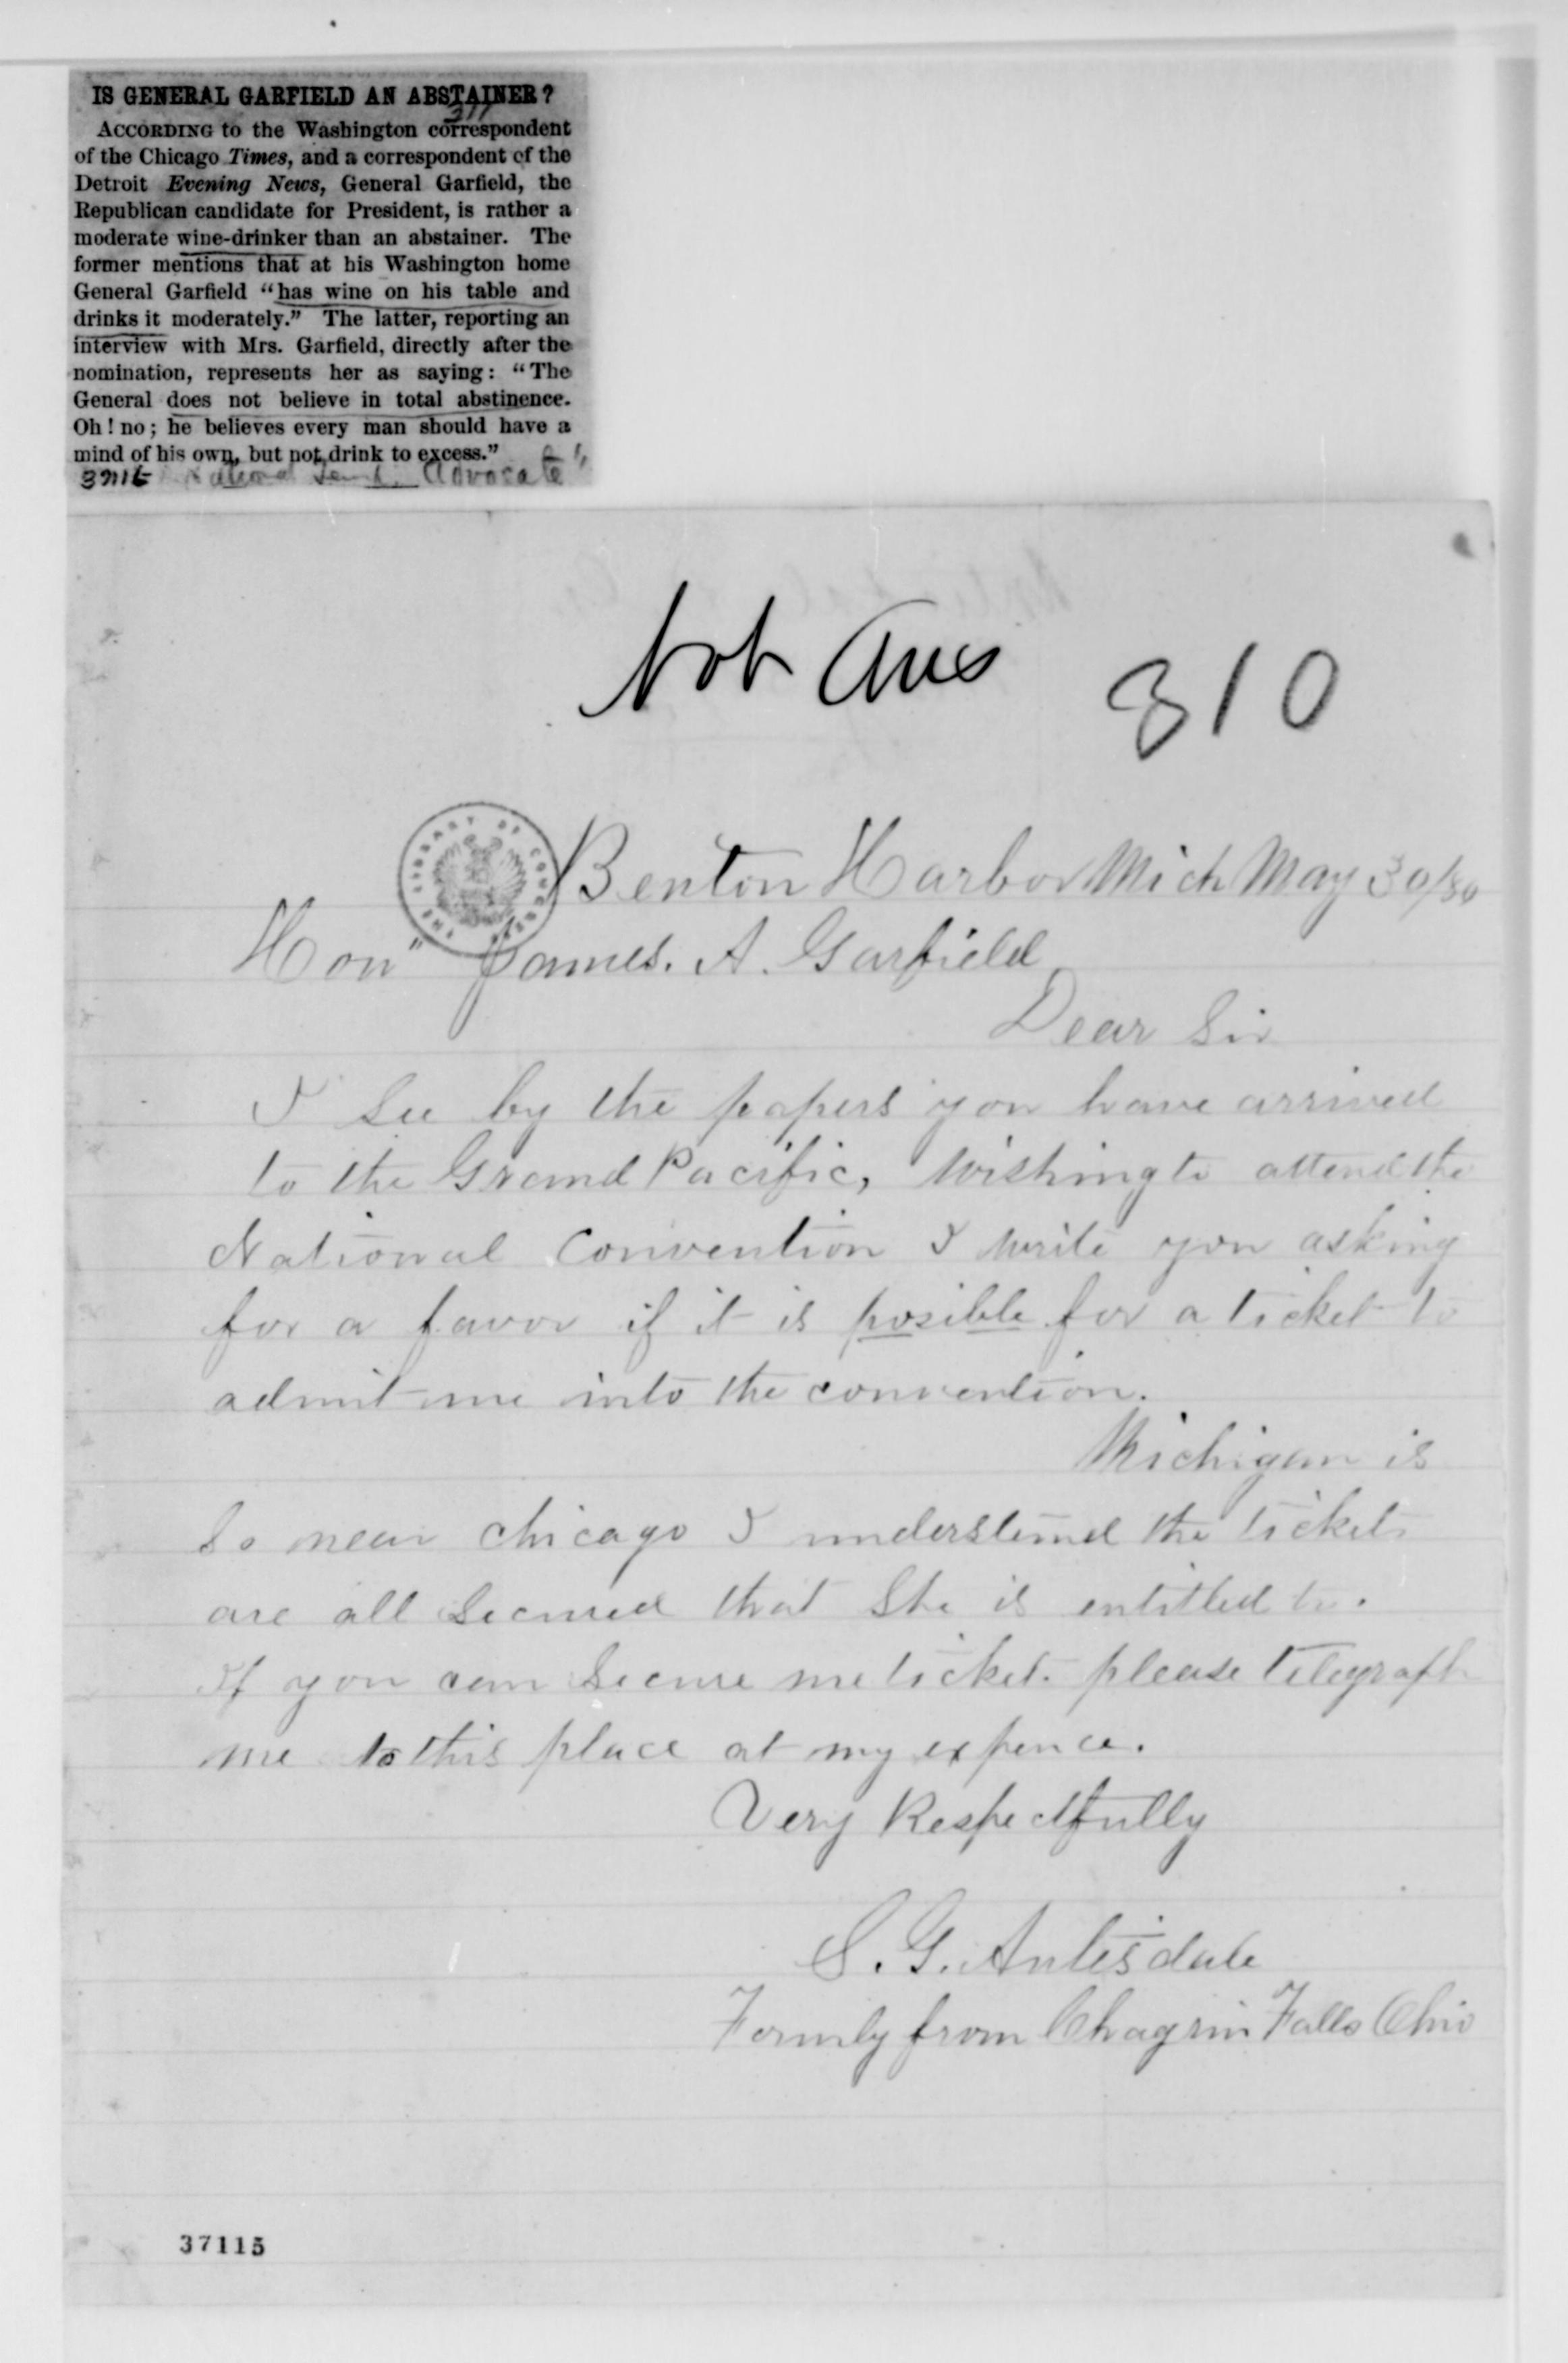 IS GENERAL GARFIELD AN ABSTAINER?
311
ACCORDING to the Washington correspondent
of the Chicago Times, and a correspondent of the
Detroit Evening News, General Garfield, the
Republican candidate for President, is rather a
moderate wine-drinker than an abstainer. The
former mentions that at his Washington home
General Garfield “has wine on his table and
drinks it moderately.” The latter, reporting an
interview with Mrs. Garfield, directly after the
nomination, represents her as saying: “The
General does not believe in total abstinence.
Oh! no; he believes every man should have a
mind of his own, but not drink to excess.”
National Advocate"
Not Ans 310
THE LIBRARY OF CONGRESS
Benton Harbor Mich May 30/80
Hon" James. A. Garfield
Dear Sir
I See by the papers you have arrived
to the Grand Pacific, Wishing to attend the
National Convention I write you asking
for a favor if it is posible for a ticket to
admit me into the convention.
Michigan is
So near Chicago I understand the tickets
are all Secured that She is entitled to.
If you can Secure me ticket. please telegraph
me to this place at my expence.
Very Respectfully
S. G. Antisdale
Formly from Chagrin Falls Ohio
37115